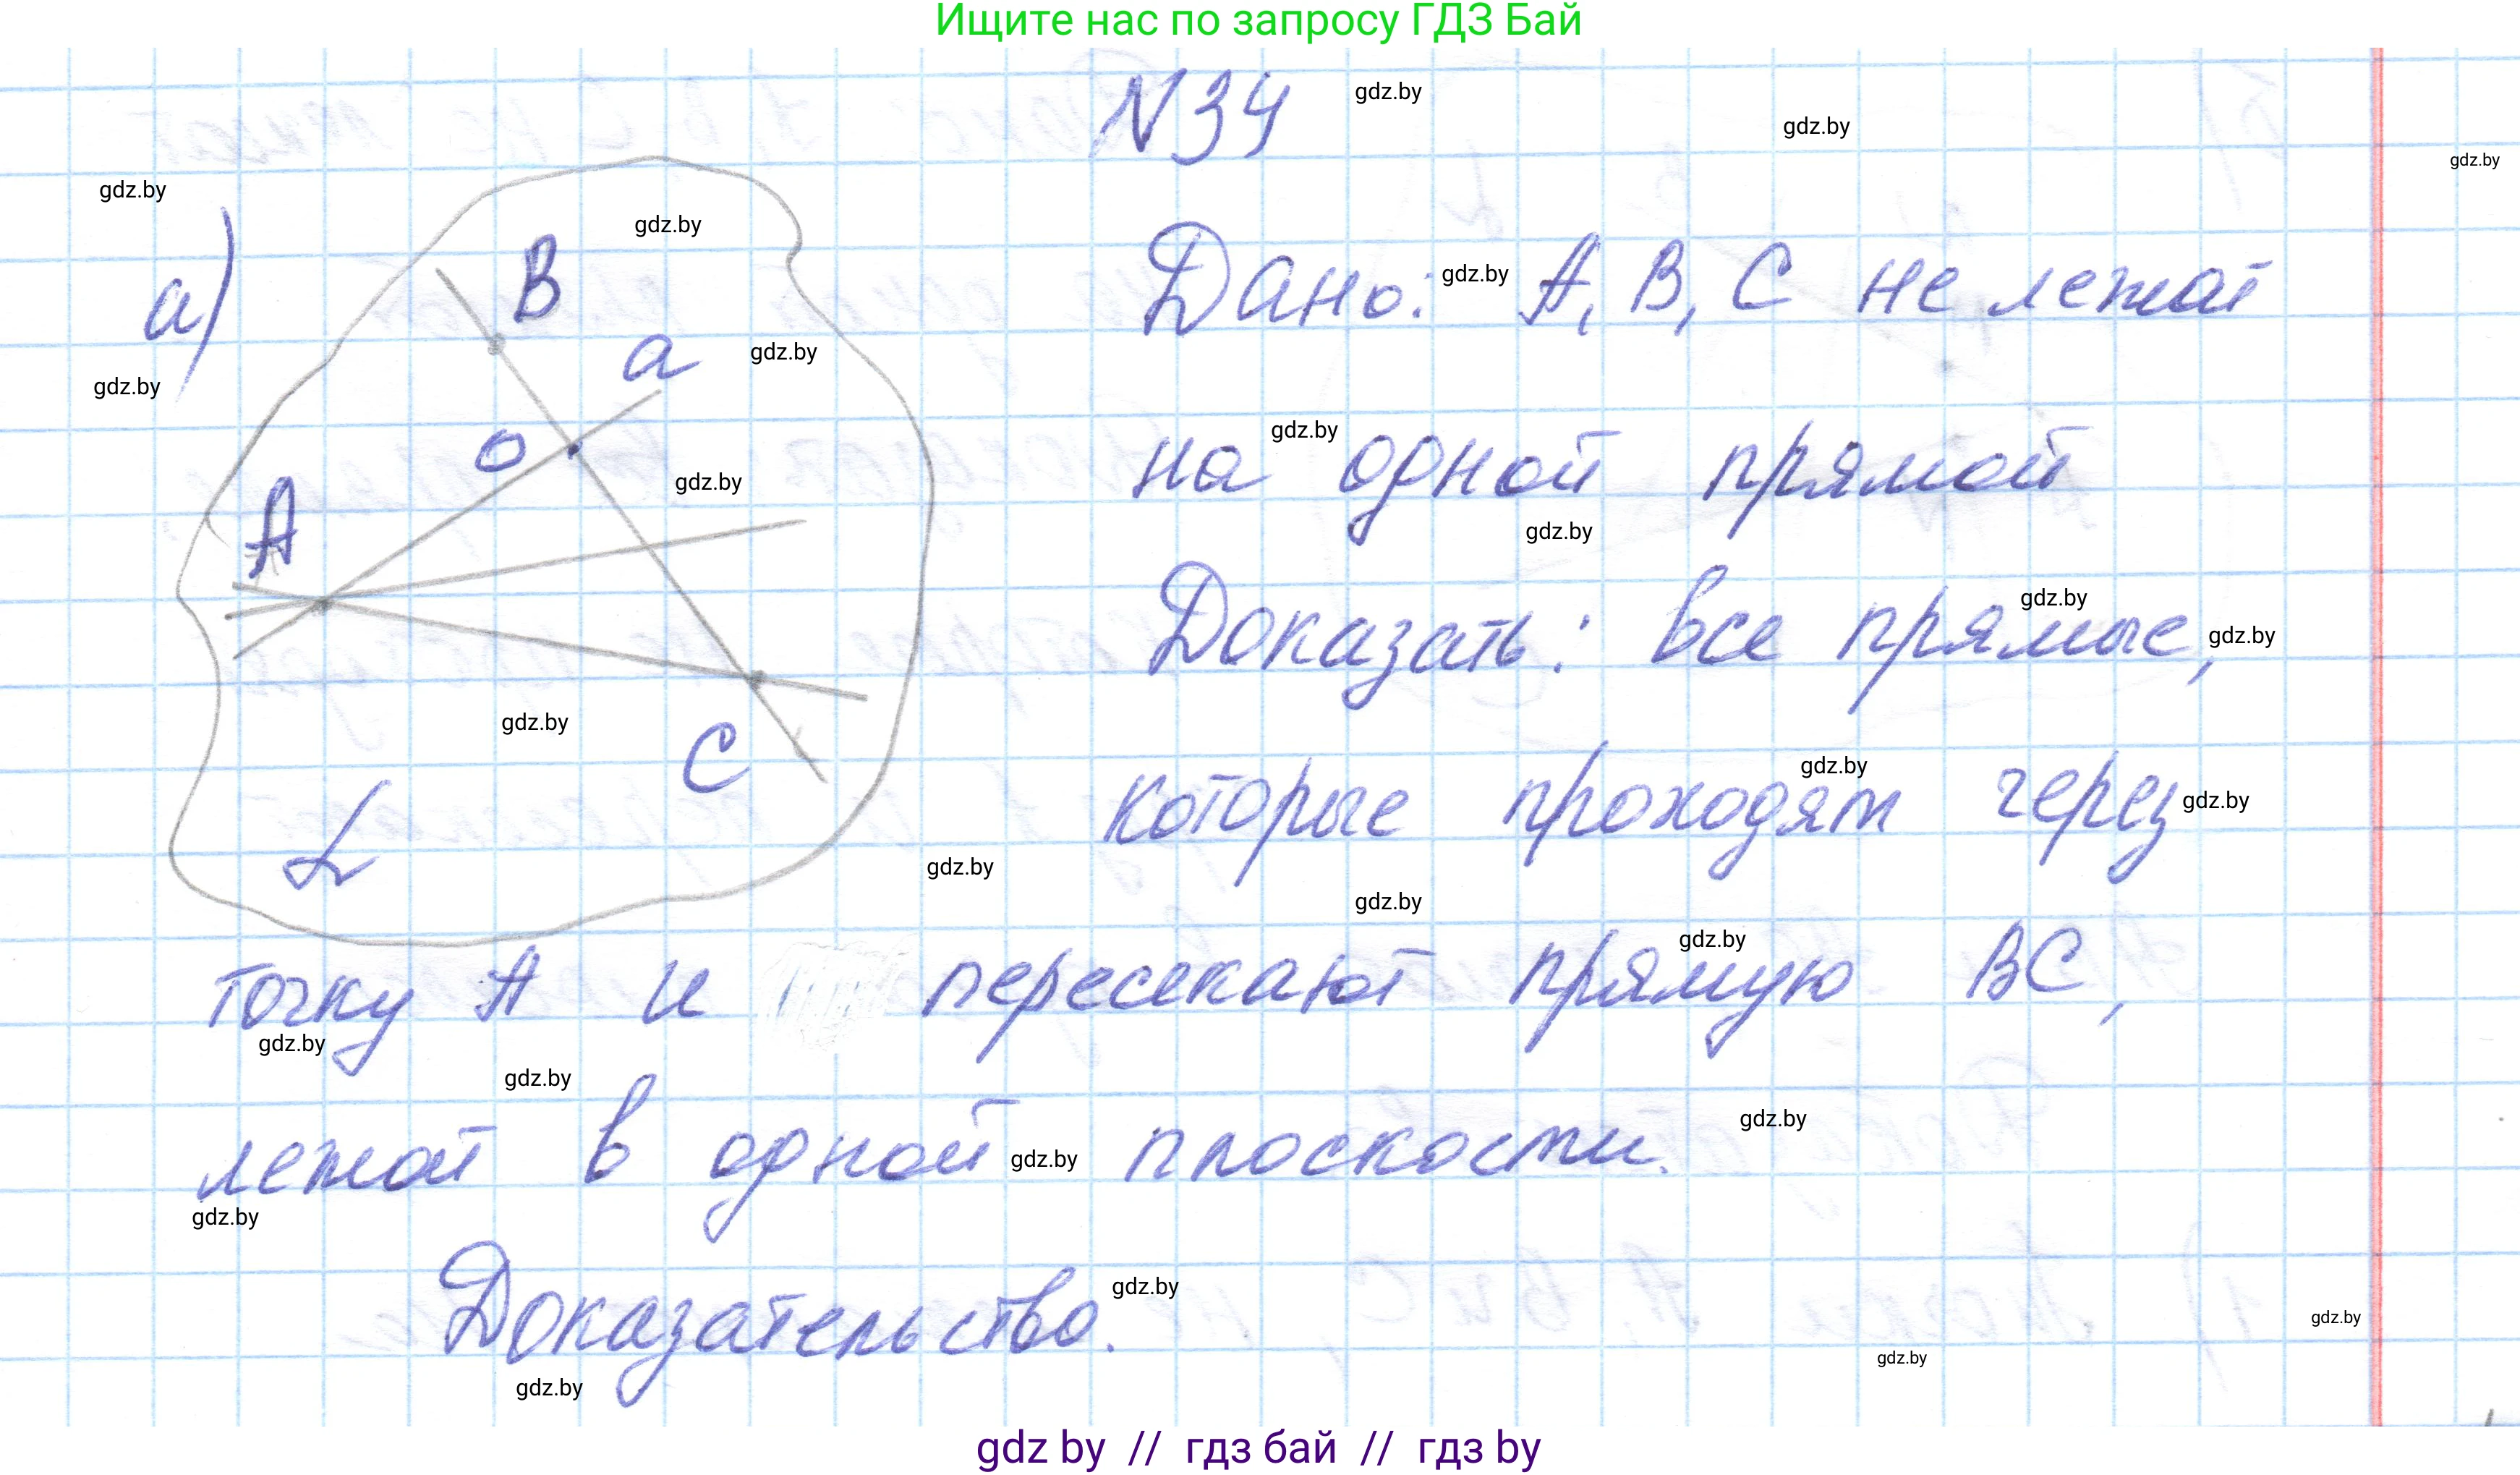 Ищите нас по запросу ГДЗ Бай
N34
gdz.by
gdz.by
gdz.by
gdz.by
gdz.by
а)
B
a
gdz.by
gdz.by
Дано: gdz.by A, B, C не лежат
o
gdz.by
gdz.by
на одной прямой
gdz.by
A
Доказать: все прямые,
gdz.by
gdz.by
gdz.by
C
которые проходят через
gdz.by
gdz.by
L
gdz.by
gdz.by
точку A и пересекают прямую BC,
gdz.by
gdz.by
gdz.by
лежат в одной gdz.by плоскости.
gdz.by
gdz.by
Доказательство.
gdz.by
gdz.by
gdz.by
gdz.by
gdz by // гдз бай // гдз by